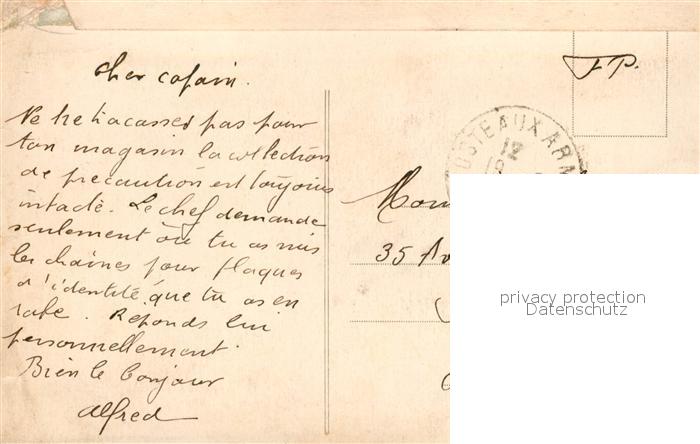 cher copain.
Ne te tracasses pas pour
ton magasin la collection
de precaution est toujours
intacte. Le chef demande
seulement où tu as mis
les chaines pour plaques
d'identité que tu as en
rabe. Reponds lui
personnellement.
Bien le bonjour
Alfred
FP.
POSTEAUX ARM
12
35 Av
privacy protection
Datenschutz